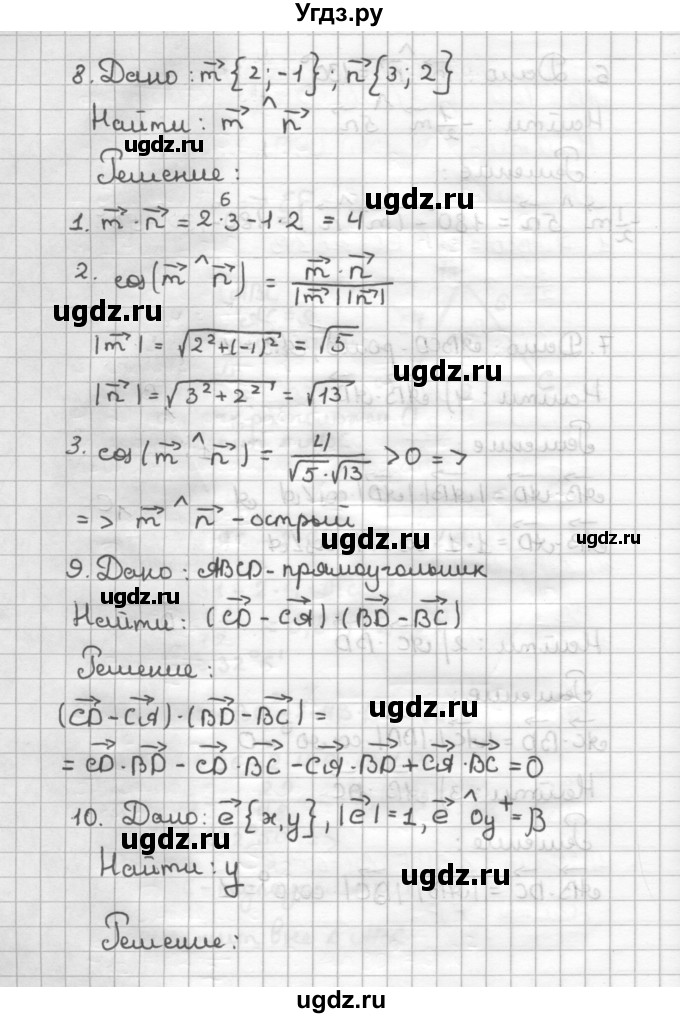 Угдз.ру
8. Дано: m⃗ {2; -1}; n⃗ {3; 2}
Найти: m⃗ ^ n⃗
ugdz.ru
Решение:
ugdz.ru
6
1. m⃗ · n⃗ = 2·3 - 1·2 = 4
2. cos(m⃗ ^ n⃗) = m⃗ · n⃗ / |m⃗| |n⃗|
ugdz.ru
|m⃗| = √(2² + (-1)²) = √5
ugdz.ru
|n⃗| = √(3² + 2²) = √13
3. cos(m⃗ ^ n⃗) = 4 / √5 · √13 > 0 =>
=> m⃗ ^ n⃗ - острый
ugdz.ru
ugdz.ru
9. Дано: ABCD - прямоугольник
ugdz.ru
Найти: (CD⃗ - CA⃗) · (BD⃗ - BC⃗)
Решение:
(CD⃗ - CA⃗) · (BD⃗ - BC⃗) =
ugdz.ru
= CD⃗ · BD⃗ - CD⃗ · BC⃗ - CA⃗ · BD⃗ + CA⃗ · BC⃗ = 0
10. Дано: e⃗ {x, y}, |e⃗| = 1, e⃗ ^ Oy⁺ = β
ugdz.ru
Найти: y
ugdz.ru
Решение:
ugdz.ru